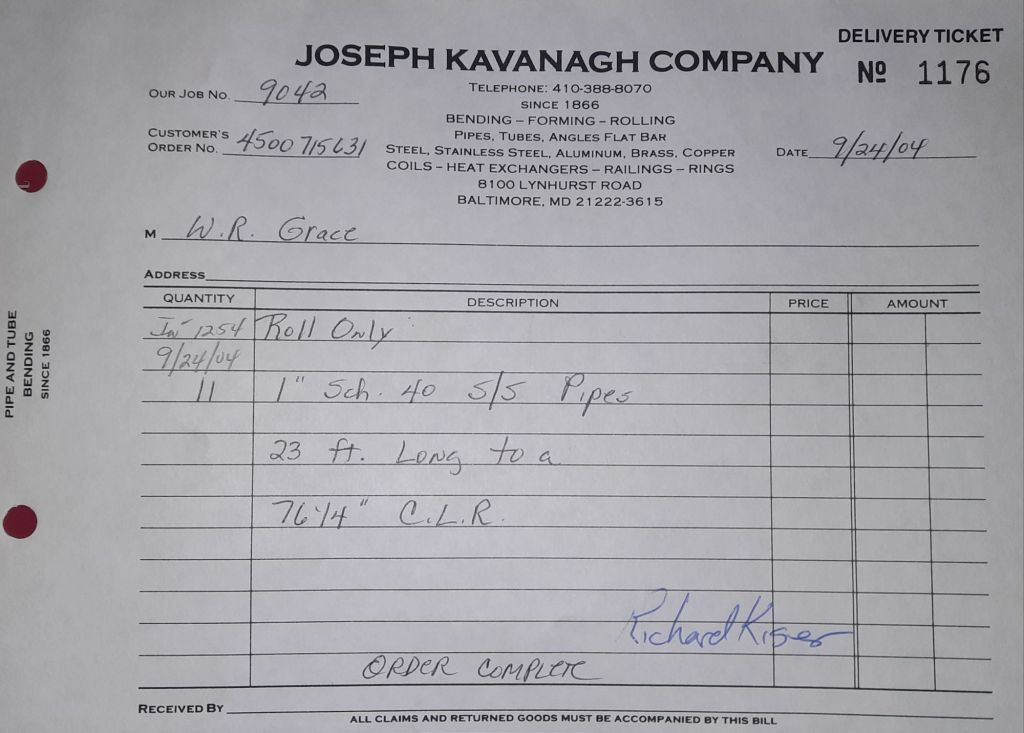 DELIVERY TICKET
JOSEPH KAVANAGH COMPANY
Nº 1176
TELEPHONE: 410-388-8070
OUR JOB NO. 9042
SINCE 1866
BENDING – FORMING – ROLLING
CUSTOMER'S
ORDER NO. 4500715631
PIPES, TUBES, ANGLES FLAT BAR
STEEL, STAINLESS STEEL, ALUMINUM, BRASS, COPPER
DATE 9/24/04
COILS – HEAT EXCHANGERS – RAILINGS – RINGS
8100 LYNHURST ROAD
BALTIMORE, MD 21222-3615
M W.R. Grace
ADDRESS
QUANTITY DESCRIPTION PRICE AMOUNT
In# 1254 Roll Only
9/24/04
11 1" Sch. 40 S/S Pipes
23 ft. Long to a
76 1/4" C.L.R.
Richard Kiser
ORDER COMPLETE
RECEIVED BY
ALL CLAIMS AND RETURNED GOODS MUST BE ACCOMPANIED BY THIS BILL
PIPE AND TUBE
BENDING
SINCE 1866